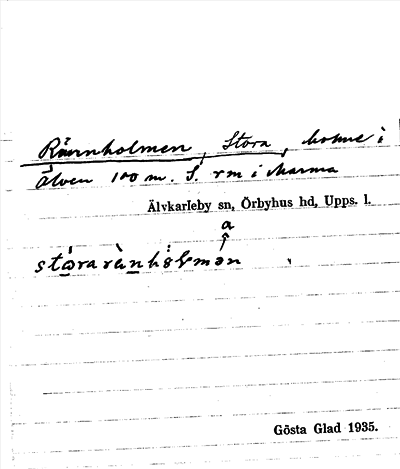 Rännholmen, Stora, holme i
älven 100 m. S. rm i Marma
Älvkarleby sn, Örbyhus hd, Upps. l.
a
stóra rànhòlmən
Gösta Glad 1935.